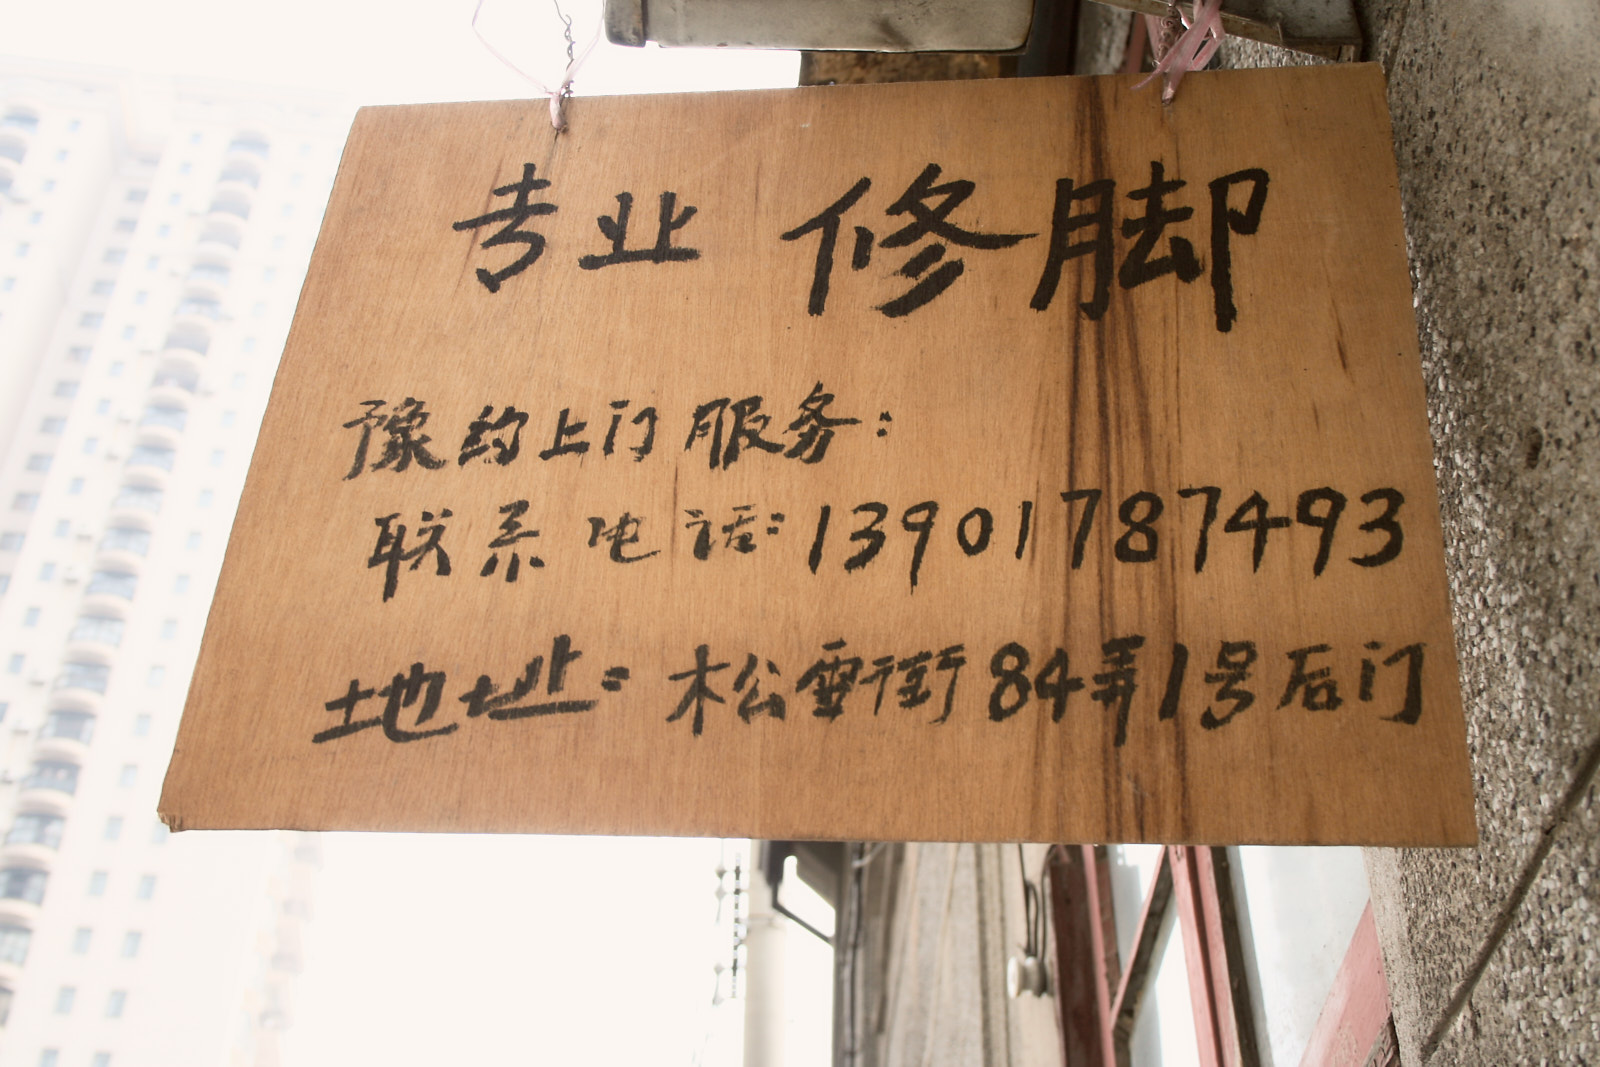 专业 修脚
豫约上门服务:
联系电话:13901787493
地址:松雪街84弄1号后门